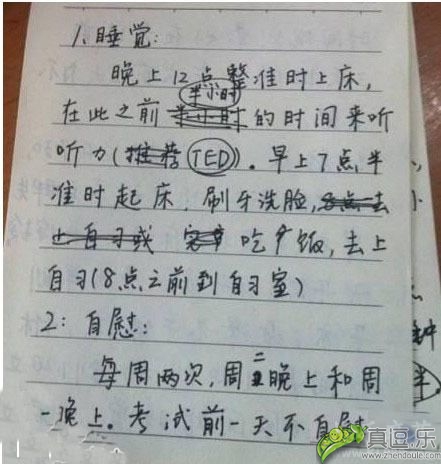 1. 睡觉:
晚上12点整准时上床,
半小时
在此之前半小时的时间来听
听力(推荐 TED)。早上7点半
准时起床,刷牙洗脸,8点去
上自习或 吃个饭,去上
自习(8点之前到自习室)
2: 自慰:
每周两次,周二晚上和周
一晚上。考试前一天不自慰
小
种
半
真逗乐
www.zhendoule.com